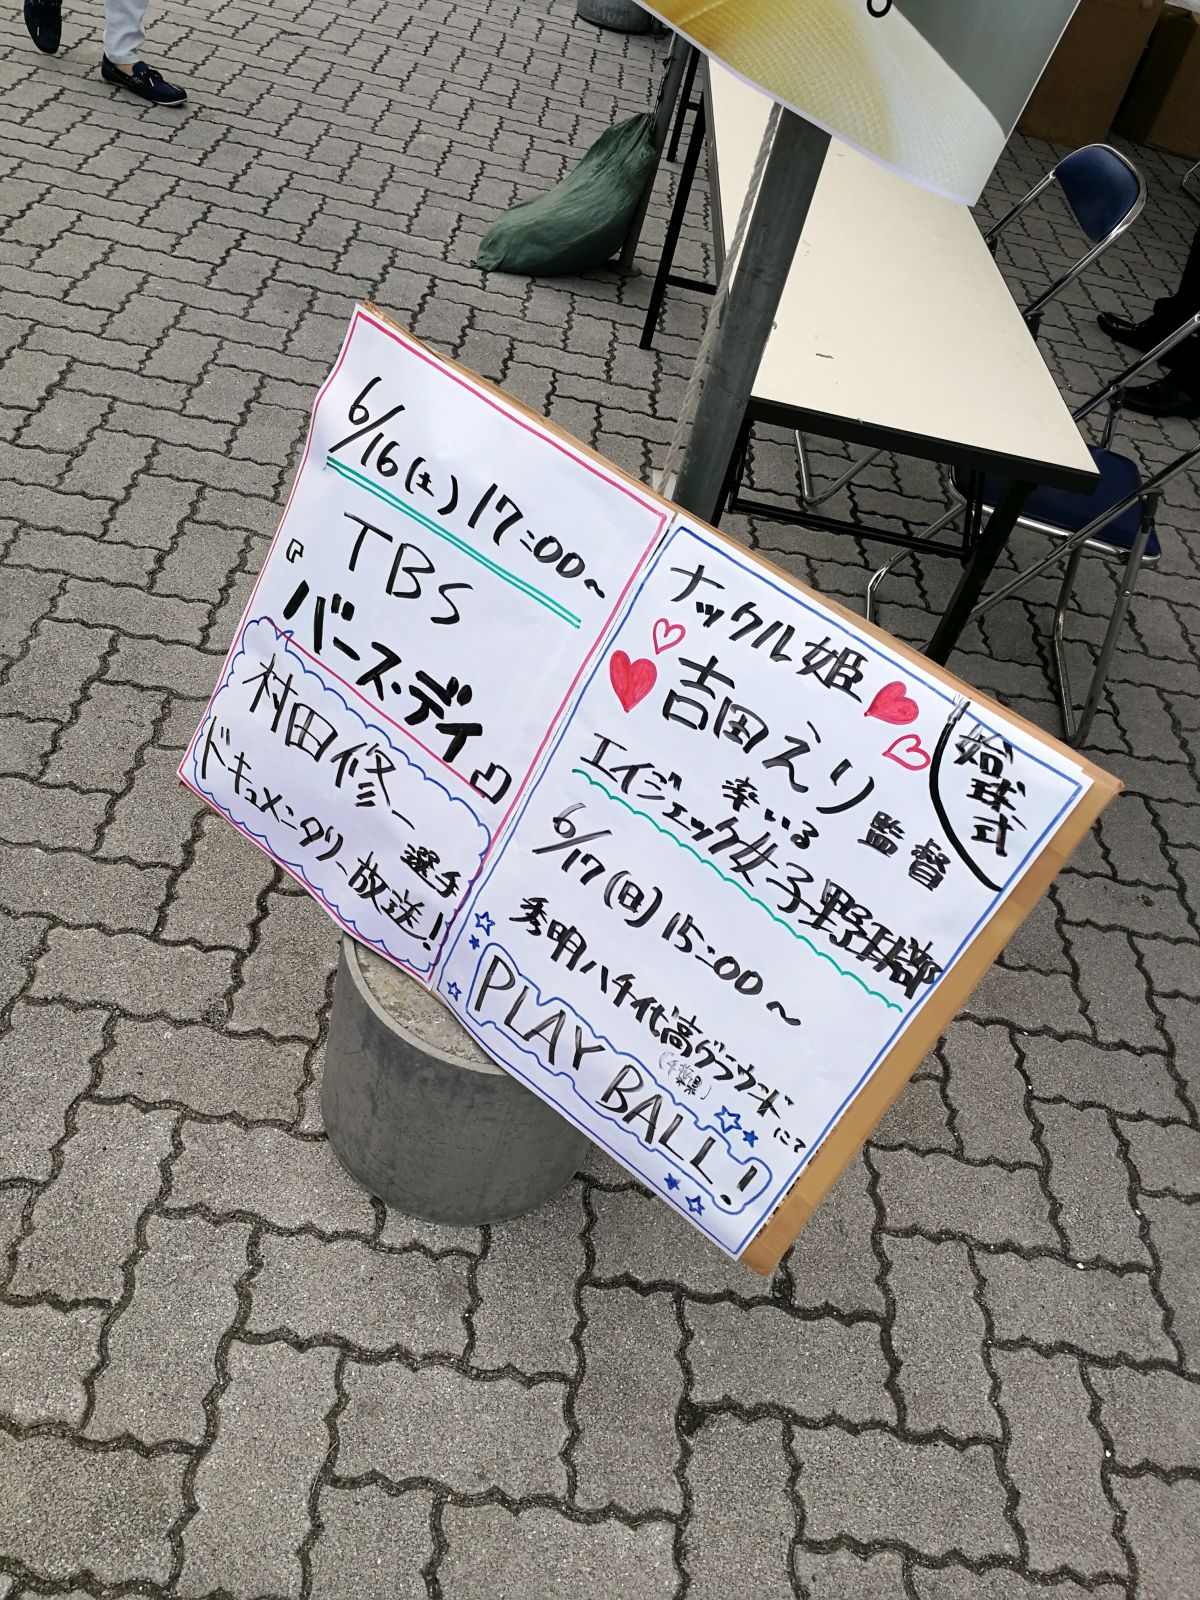 6/16(土) 17:00~
TBS
『バース・デイ』
村田修一選手
ドキュメンタリー放送!
始球式
ナックル姫
吉田えり監督
率いる
エイジェック女子野球部
6/17(日) 15:00~
秀明八千代高グラウンド
にて
PLAY BALL!